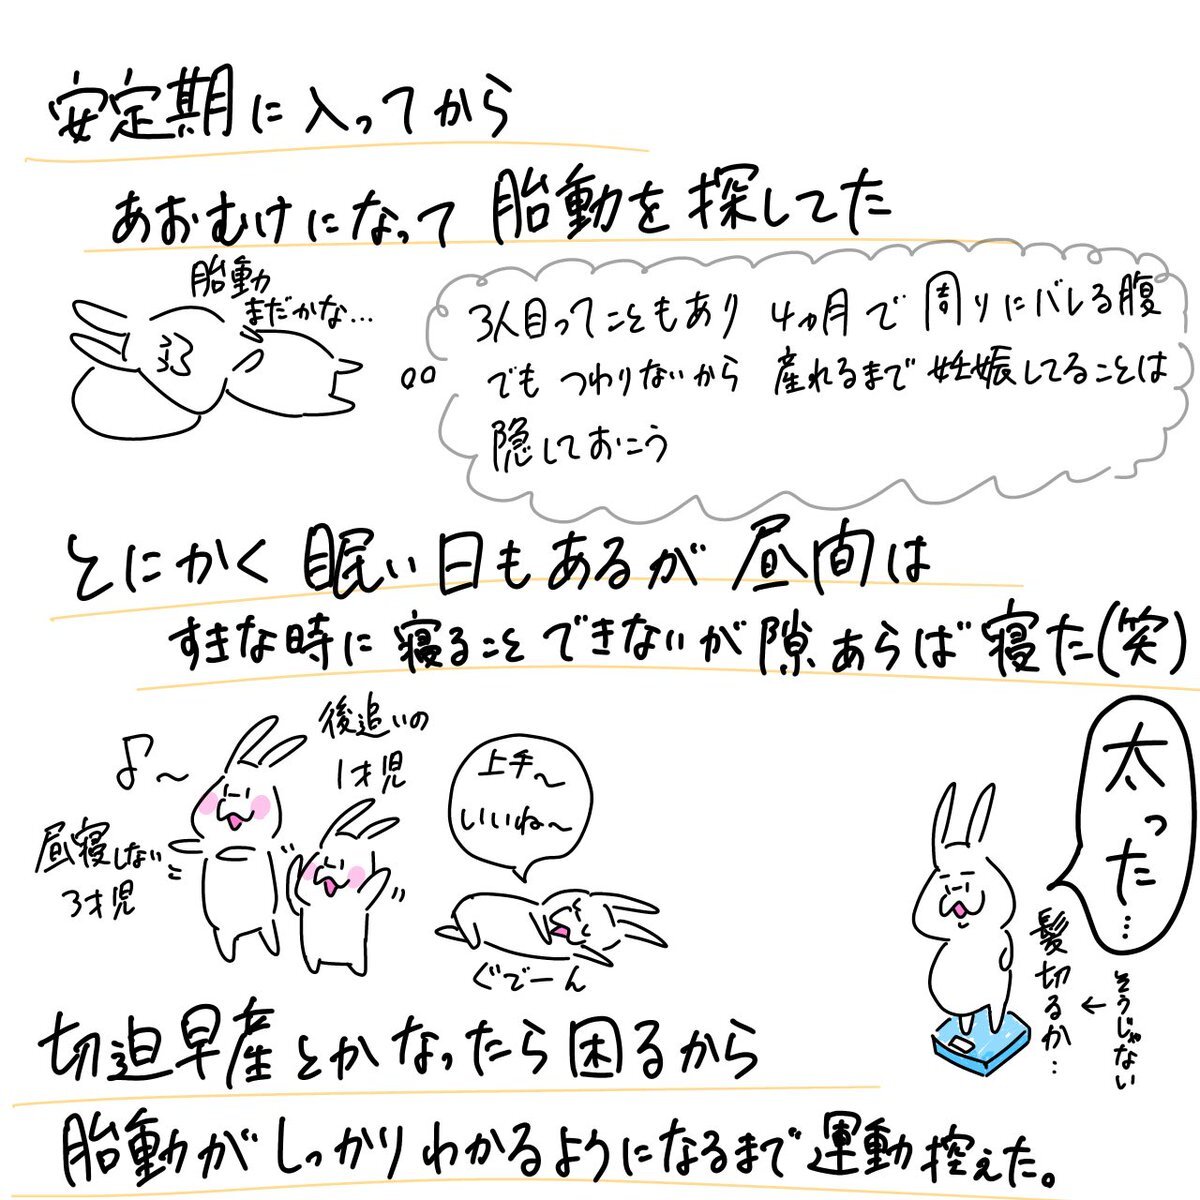 安定期に入ってから
あおむけになって胎動を探してた
胎動
まだかな…
3人目ってこともあり 4ヵ月で周りにバレる腹
でも つわりないから 産れるまで妊娠してることは
隠しておこう
とにかく眠い日もあるが昼間は
すきな時に寝ることできないが隙あらば寝た(笑)
♪〜
後追いの
1才児
昼寝しない
3才児
上手〜
いいね〜
ぐでーん
太った…
髪切るか…
←そうじゃない
切迫早産とかなったら困るから
胎動がしっかりわかるようになるまで運動控えた。